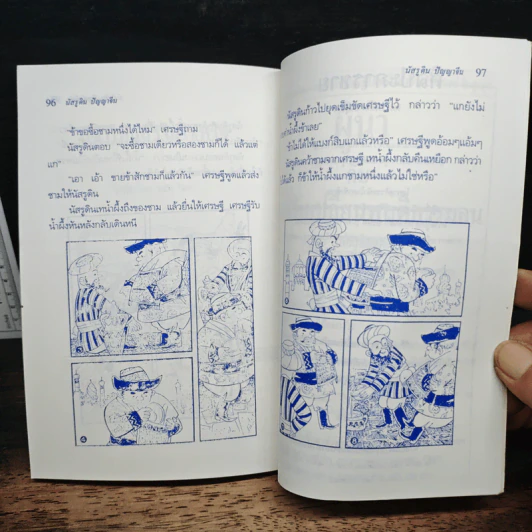 96 นัสรูดิน ปัญญาจีน
"ข้าขอซื้อชามหนึ่งได้ไหม" เศรษฐีถาม
นัสรูดินตอบ "จะซื้อชามเดียวหรือสองชามก็ได้ แล้วแต่
แก"
"เอา เอ้า ขายข้าสักชามก็แล้วกัน" เศรษฐีพูดแล้วส่ง
ชามให้นัสรูดิน
นัสรูดินเทน้ำผึ้งถึงของชาม แล้วยื่นให้เศรษฐี เศรษฐีรับ
น้ำผึ้งหันหลังกลับเดินหนี
นัสรูดิน ปัญญาจีน 97
นัสรูดินก้าวไปยุดเข็มขัดเศรษฐีไว้ กล่าวว่า "แกยังไม่
ค่าน้ำผึ้งข้าเลย"
"ข้าไม่ได้ให้แบงก์สิบแกแล้วหรือ" เศรษฐีพูดอ้อมๆแอ้มๆ
นัสรูดินคว้าชามจากเศรษฐี เทน้ำผึ้งกลับคืนเหยือก กล่าวว่า
ได้แล้ว ก็ข้าให้น้ำผึ้งแกชามหนึ่งแล้วไม่ใช่หรือ"